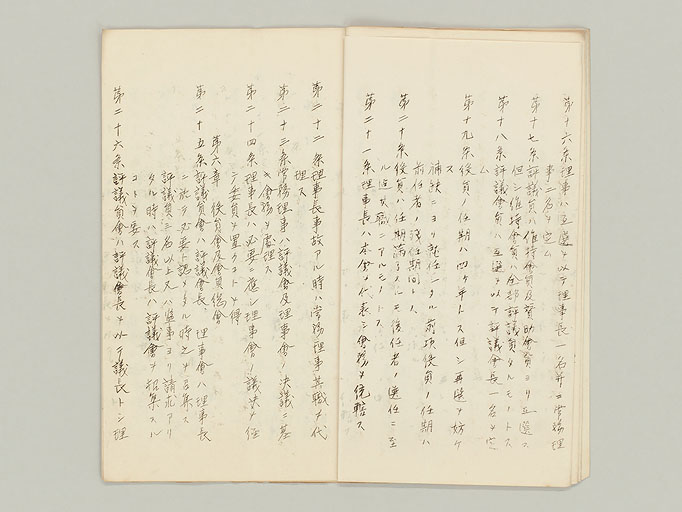 第十六条理事ハ互選ヲ以テ理事長一名并ニ常務理
事二名ヲ定ム
第十七条評議員ハ維持会員及賛助会員ヨリ互選ス
但シ維持会員ハ全部評議員タルモノトス
第十八条評議会員ハ互選ヲ以テ評議会長一名ヲ定
ム
第十九条役員ノ任期ハ四ケ年トス但シ再選ヲ妨ケ
ス
補缺ニヨリ就任シタル前項役員ノ任期ハ
前任者ノ残任期間トス
第二十条役員ハ任期満了スルモ後任者ノ選任ニ至
ル迄欠職ニアルモノトス
第二十一条理事長ハ本会ヲ代表シ会務ヲ統轄ス
第二十二条理事長事故アル時ハ常務理事其職ヲ代
理ス
第二十三条常務理事ハ評議会及理事会ノ決議ニ基
キ会務ヲ處理ス
第二十四条理事長ハ必要ニ應シ理事会ノ議決ヲ経
テ委員ヲ置クコトヲ得
第六章 役員会及会員総会
第二十五条評議員会ハ評議会長、理事会ハ理事長
ニ於テ必要ト認メタル時之ヲ召集ス
評議員三名以上又ハ監事ヨリ請求アリ
タル時ハ評議会長ハ評議会ヲ招集スル
コトヲ要ス
第二十六条評議員会ハ評議会長ヲ以テ議長トシ理